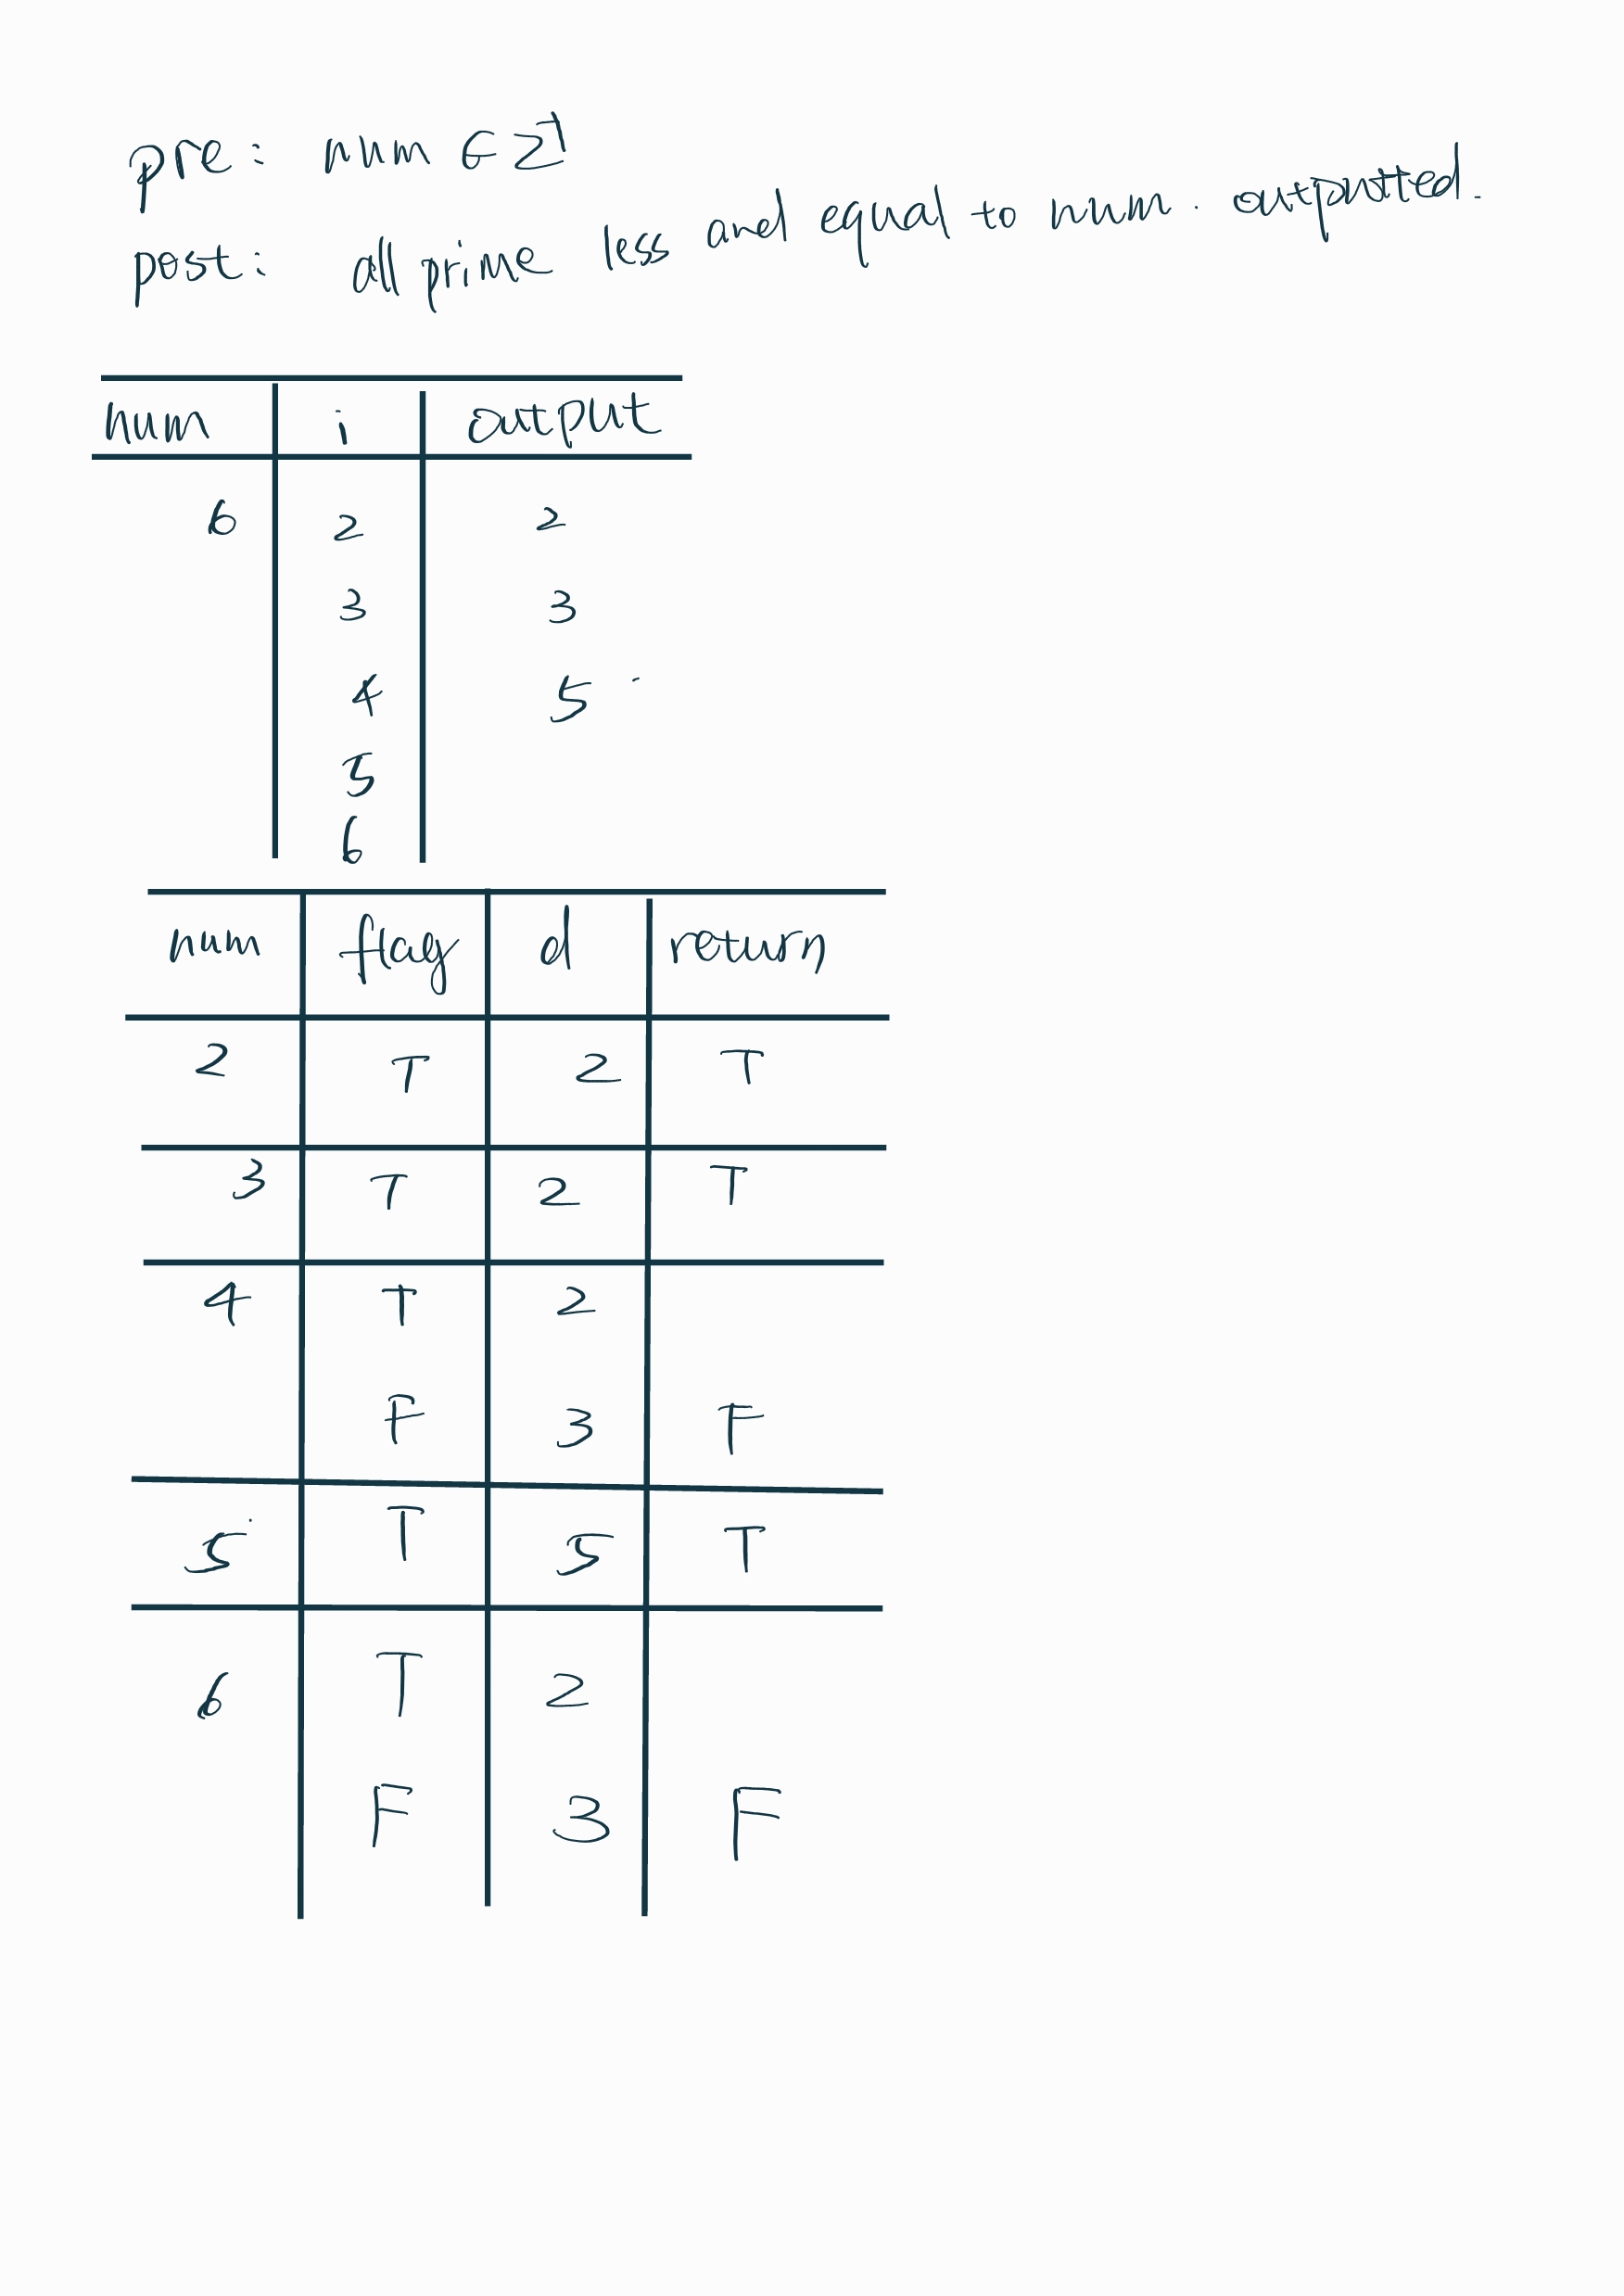 pre: num ∈ Z⁺
post: all prime less and equal to num. outputted.
num i output
6 2 2
3 3
4 5
5
6
num flag d return
2 T 2 T
3 T 2 T
4 T 2
F 3 F
5 T 5 T
6 T 2
F 3 F